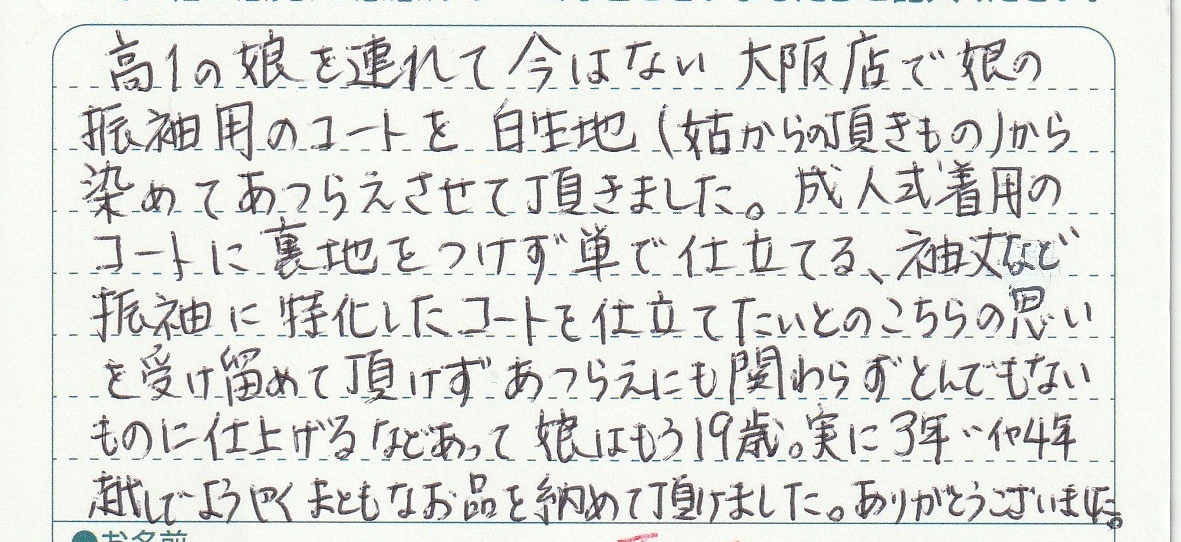 高1の娘を連れて今はない大阪店で娘の
振袖用のコートを白生地(姑からの頂きもの)から
染めてあつらえさせて頂きました。成人式着用の
コートに裏地をつけず単で仕立てる、袖丈など
振袖に特化したコートを仕立てたいとのこちらの思い
を受け留めて頂けずあつらえにも関わらずとんでもない
ものに仕上げるなどあって娘はもう19歳。実に3年…や4年
越しでようやくまともなお品を納めて頂けました。ありがとうございました。
●お名前